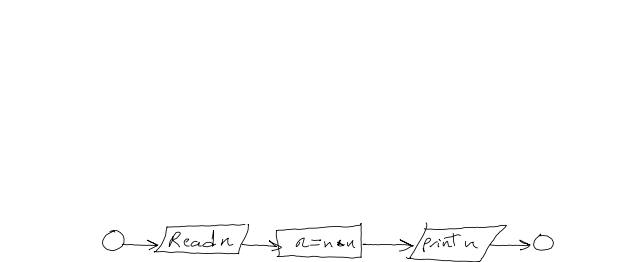 Read n
n=n*n
print n